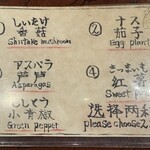 ① しいたけ
香菇
Shiitake mushroom
アスパラ
芦芛
Asparagus
ししとう
小青椒
Green pepper
② ナス
茄子
Egg plant
さつまいも
红薯
Sweet
选择两种
please choose 2